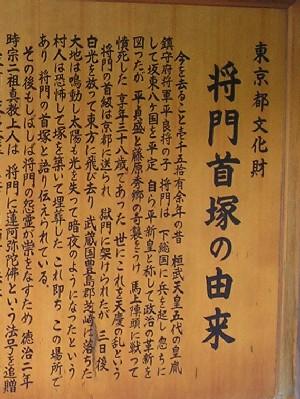 東京都文化財
将門首塚の由来
今を去ること壱千五拾有余年の昔 桓武天皇五代の皇胤
鎮守府将軍平良将の子 将門は 下総国に兵を起し 忽ちに
して坂東八ヶ国を平定 自ら平新皇と称して政治の革新を
図ったが 平貞盛と藤原秀郷の奇襲をうけ 馬上陣頭に戦って
憤死した 享年三十八歳であった 世にこれを天慶の乱という
将門の首級は京都に送られ 獄門に架けられたが 三日後
白光を放って東方に飛び去り 武蔵国豊島郡芝崎に落ちた
大地は鳴動し太陽も光を失って暗夜のようになったという
村人は恐怖して塚を築いて埋葬した これ即ち この場所で
あり 将門の首塚と語り伝えられている
その後もしばしば将門の怨霊が祟をなすため 徳治二年
時宗二祖真教上人は 将門に蓮阿弥陀佛という法号を追贈